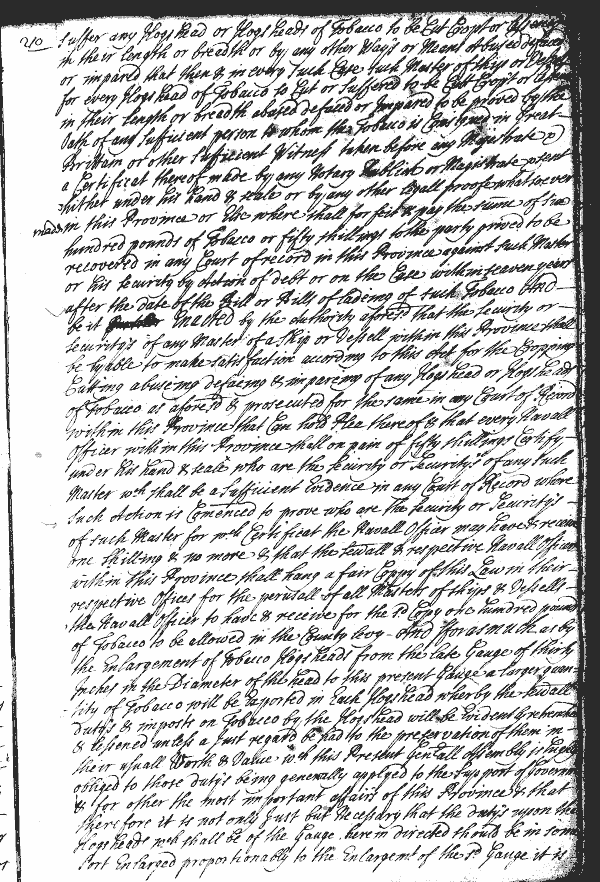 210
Suffer any Hogshead or Hogsheads of Tobacco to be Cut Cropt or
in their length or breadth or by any other Ways or Means abused defaced
or impared that then & in every such Case such Master of ship or Vessell
for every Hogshead of Tobacco so Cut or suffered to be Cutt Cropt or
in their length or breadth abased defaced or impared to be proved by the
Oath of any sufficient person to whom the Tobacco is Consigned in Great
Brittain or other Sufficient Witness taken before any Majistrate &
a Certificat thereof made by any Notary Publick or Magistrate
hither under his hand & seale or by any other legall proofe whatsoever
made in this Province or Else where shall forfeit & pay the sume of
hundred pounds of Tobacco or fifty shillings to the party grived to be
recovered in any Court of record in this Province against such Master
or his security by Action of debt or on the Case within seaven years
after the date of the Bill or Bills of lading of such Tobacco And
be it Enacted by the authority aforesd that the security or
security's of any Master of a Ship or Vessell within this Province shall
be lyable to make satisfaction acording to this Act for the Cropping
Cutting abuseing defaceing & impareing of any Hogshead or Hogsheads
of Tobacco as aforesd & prosecuted for the same in any Court of Record
within this Province that Can hold Plea thereof & that every Navall
Officer within this Province shall on pain of fifty shillings Certify
under his hand & seale who are the security or Security's of any such
Master wch shall be a Sufficient Evidence in any Court of Record where
such Action is Comenced to prove who are the security or Security's
of such Master for wch Certificat the Navall Officer may have & receive
one shilling & no more & that the sevall & respective Navall Officers
within this Province shall hang a fair Coppy of this Law in their
respective Offices for the perusall of all Masters of ships & Vessells
the Navall Officer to have & receive for the sd Copy one hundred pounds
of Tobacco to be allowed in the County levy And Forasmuch as by
the Enlargement of Tobacco Hogsheads from the late Gauge of thirty
Inches in the Diameter of the head to this present Gauge a larger quan
tity of Tobacco will be Exported in Each Hogshead wherby the sevall
Duty's & imposts on Tobacco by the Hogshead will be Evidently
& lessened unless a Just regard be had to the preservation of them in
their usuall Worth & Value wch this Present Genrall Assembly is
obliged to those duty's being generally applyed to the support of Governmt
& for other the most important affairs of this Province & that
therefore it is not only Just but Necessary that the duty's upon the
Hogsheads wch shall be of the Gauge herein directed should be in some
sort Enlarged proportionably to the Enlargemt of the sd Gauge it is